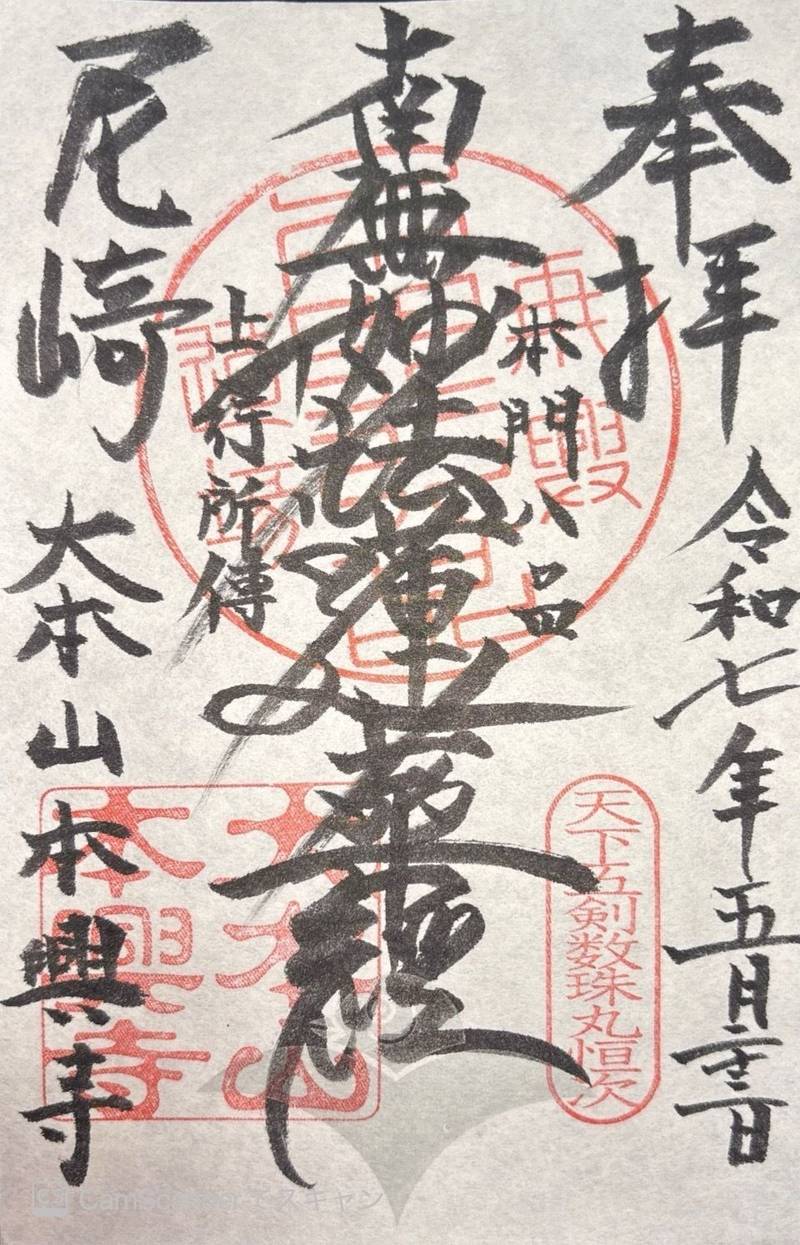 奉拝
令和七年五月二十三日
本門八品
南無妙法蓮華経
上行所傳
尼崎
大本山本興寺
天下五剣数珠丸恒次
大本山
本興寺
CamScannerでスキャン